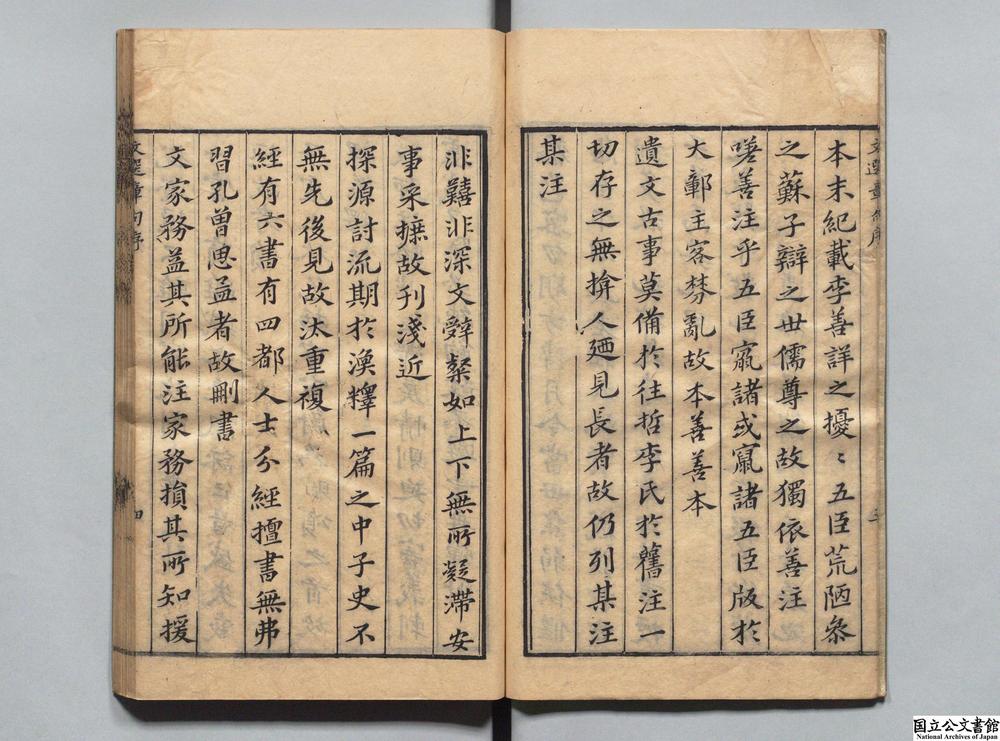 本末紀載李善詳之擾〻五臣荒陋叅
之蘇子辯之世儒尊之故獨依善注
嗟善注乎五臣竄諸或竄諸五臣版於
大鄣主客棼亂故本善善本
遺文古事莫備於往哲李氏於舊注一
切存之無揜人廼見長者故仍列某注
某注
非囏非深文辭粲如上下無所凝滯安
事采摭故刋淺近
探源討流期於渙釋一篇之中子史不
無先後見故汰重複
經有六書有四都人士分經擅書無弗
習孔曾思孟者故刪書
文家務益其所能注家務損其所知援
文選章句序
四
国立公文書館
National Archives of Japan